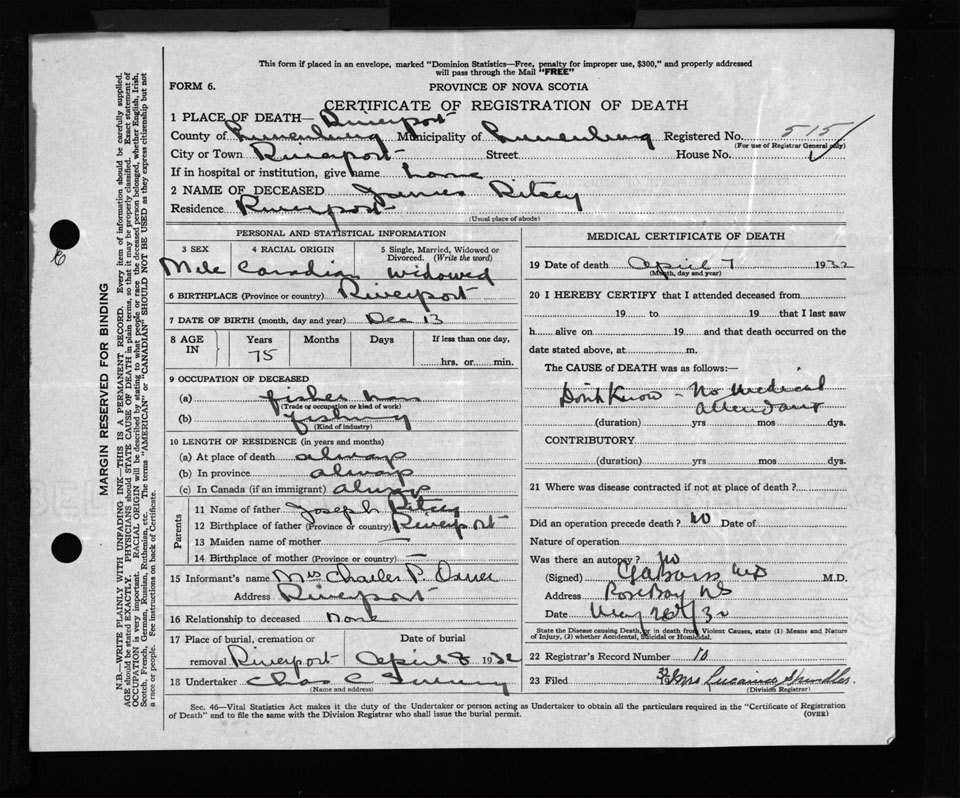 This form if placed in an envelope, marked "Dominion Statistics—Free, penalty for improper use, $300," and properly addressed
will pass through the Mail "FREE"
FORM 6.
PROVINCE OF NOVA SCOTIA
CERTIFICATE OF REGISTRATION OF DEATH
1 PLACE OF DEATH— Riverport
County of Lunenburg Municipality of Lunenburg Registered No. 515
(For use of Registrar General only)
City or Town Riverport Street House No.
If in hospital or institution, give name home
2 NAME OF DECEASED James Ritcey
Residence Riverport
(Usual place of abode)
PERSONAL AND STATISTICAL INFORMATION
3 SEX 4 RACIAL ORIGIN 5 Single, Married, Widowed or Divorced. (Write the word)
Male Canadian Widowed
6 BIRTHPLACE (Province or country) Riverport
7 DATE OF BIRTH (month, day and year) Dec 13
8 AGE IN Years Months Days If less than one day,
75 hrs. or min.
9 OCCUPATION OF DECEASED
(a) fisher man
(Trade or occupation or kind of work)
(b) fishing
(Kind of industry)
10 LENGTH OF RESIDENCE (in years and months)
(a) At place of death always
(b) In province always
(c) In Canada (if an immigrant) always
Parents
11 Name of father Joseph Ritcey
12 Birthplace of father (Province or country) Riverport
13 Maiden name of mother —
14 Birthplace of mother (Province or country) —
15 Informant's name Mrs Charles P.
Address Riverport
16 Relationship to deceased None
17 Place of burial, cremation or removal Riverport Date of burial April 8 1932
18 Undertaker Chas C
(Name and address)
MEDICAL CERTIFICATE OF DEATH
19 Date of death April 7 1932
(Month, day and year)
20 I HEREBY CERTIFY that I attended deceased from
19 to 19 that I last saw
h alive on 19 and that death occurred on
date stated above, at m.
The CAUSE of DEATH was as follows:—
Don't Know - No Medical
attendant
(duration) yrs mos dys.
CONTRIBUTORY
(duration) yrs mos dys.
21 Where was disease contracted if not at place of death?
Did an operation precede death? no Date of
Nature of operation
Was there an autopsy? no
(Signed) MD M.D.
Address Rose Bay NS
Date May 20th/32
State the Disease causing Death, or in death from Violent Causes, state (1) Means and Nature
of Injury, (2) whether Accidental, Suicidal or Homicidal.
22 Registrar's Record Number 10
23 Filed Mrs
(Division Registrar)
Sec. 46—Vital Statistics Act makes it the duty of the Undertaker or person acting as Undertaker to obtain all the particulars required in the "Certificate of Registration
of Death" and to file the same with the Division Registrar who shall issue the burial permit.
(OVER)
MARGIN RESERVED FOR BINDING
N.B.—WRITE PLAINLY WITH UNFADING INK—THIS IS A PERMANENT RECORD. Every item of information should be carefully supplied.
AGE should be stated EXACTLY. PHYSICIANS should STATE CAUSE OF DEATH in plain terms, so that it may be properly classified. Exact statement of
OCCUPATION is very important. RACIAL ORIGIN will be described by stating to what people or race the deceased person belonged, whether English, Irish,
Scotch, French, German, Russian, Ruthenian, etc. The terms "AMERICAN" or "CANADIAN" SHOULD NOT BE USED as they express citizenship but not
a race or people. See instructions on back of Certificate.